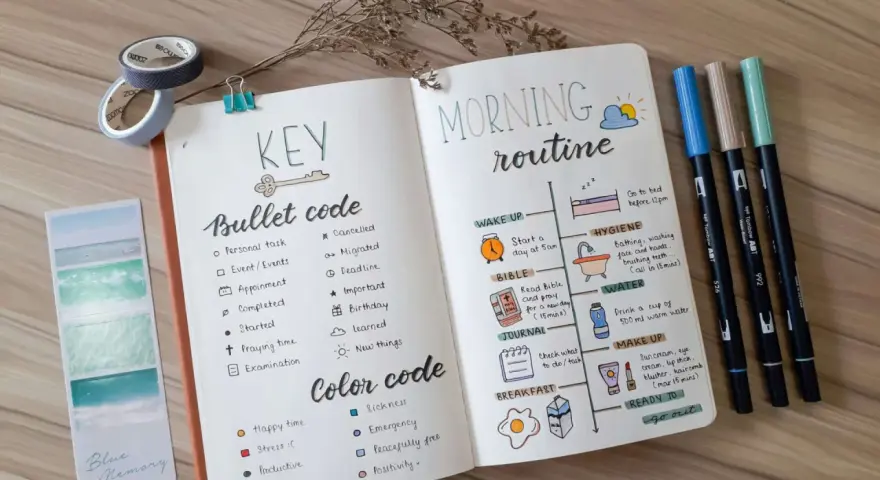 KEY
Bullet code
Personal task
Event/Events
Appoinment
Completed
Started
Praying time
Examination
Cancelled
Migrated
Deadline
Important
Birthday
learned
New things
Color code
Happy time
Stress :(
Productive
Sickness
Emergency
Peacefully free
Positivity
MORNING
routine
zzz
Go to bed
before 12pm
WAKE UP
Start a
day at 5am
HYGIENE
Bathing, washing
face and hands,
brushing teeth
(all in 15mins)
BIBLE
Read Bible
and pray
for a new day
(15mins)
WATER
Drink a cup of
500ml warm water
JOURNAL
Check what
to do/task
MAKE UP
Suncream, eye
cream, lipstick,
blusher, haircomb
(max 15mins)
BREAKFAST
READY TO
go out
Blue
Memory
ABT
992
ABT
526